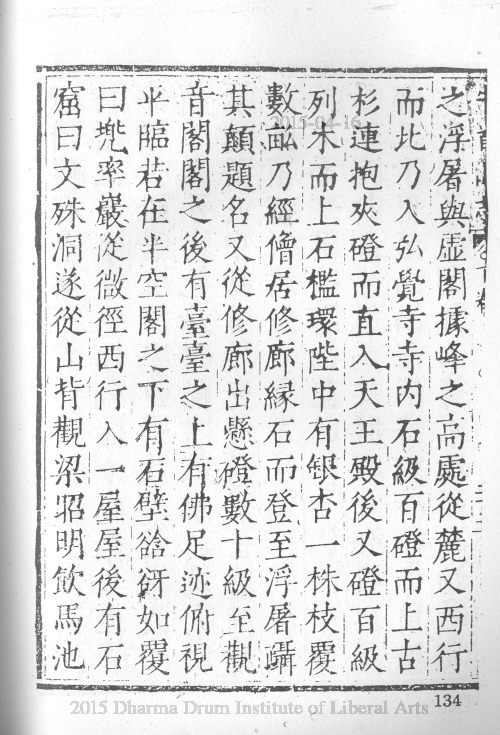 之浮屠與虛閣據峰之高處從麓又西行
而比乃入弘覺寺寺内石級百磴而上古
杉連抱夾磴而直入天王殿後又磴百級
列木而上石檻環陛中有銀杏一株枝覆
數畝乃經僧居修廊緣石而登至浮屠躡
其顛題名又從修廊出懸磴數十級至觀
音閣閣之後有臺臺之上有佛足迹俯視
平臨若在半空閣之下有石壁谽谺如覆
曰兠率巖從微徑西行入一屋屋後有石
窟曰文殊洞遂從山背觀梁昭明飲馬池
2015-04-16
134
2015 Dharma Drum Institute of Liberal Arts